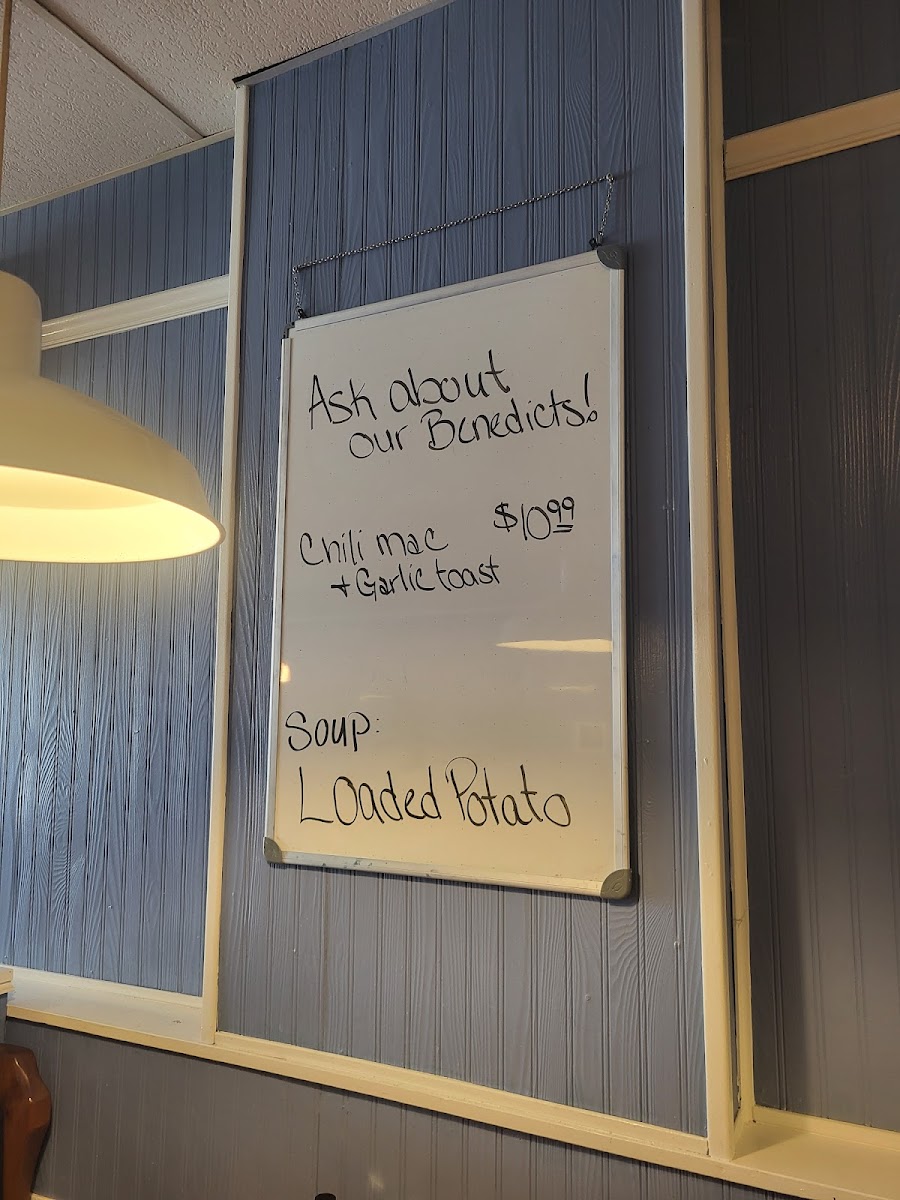 Ask about
our Benedicts!
Chili mac $10.99
+ Garlic toast
Soup:
Loaded Potato